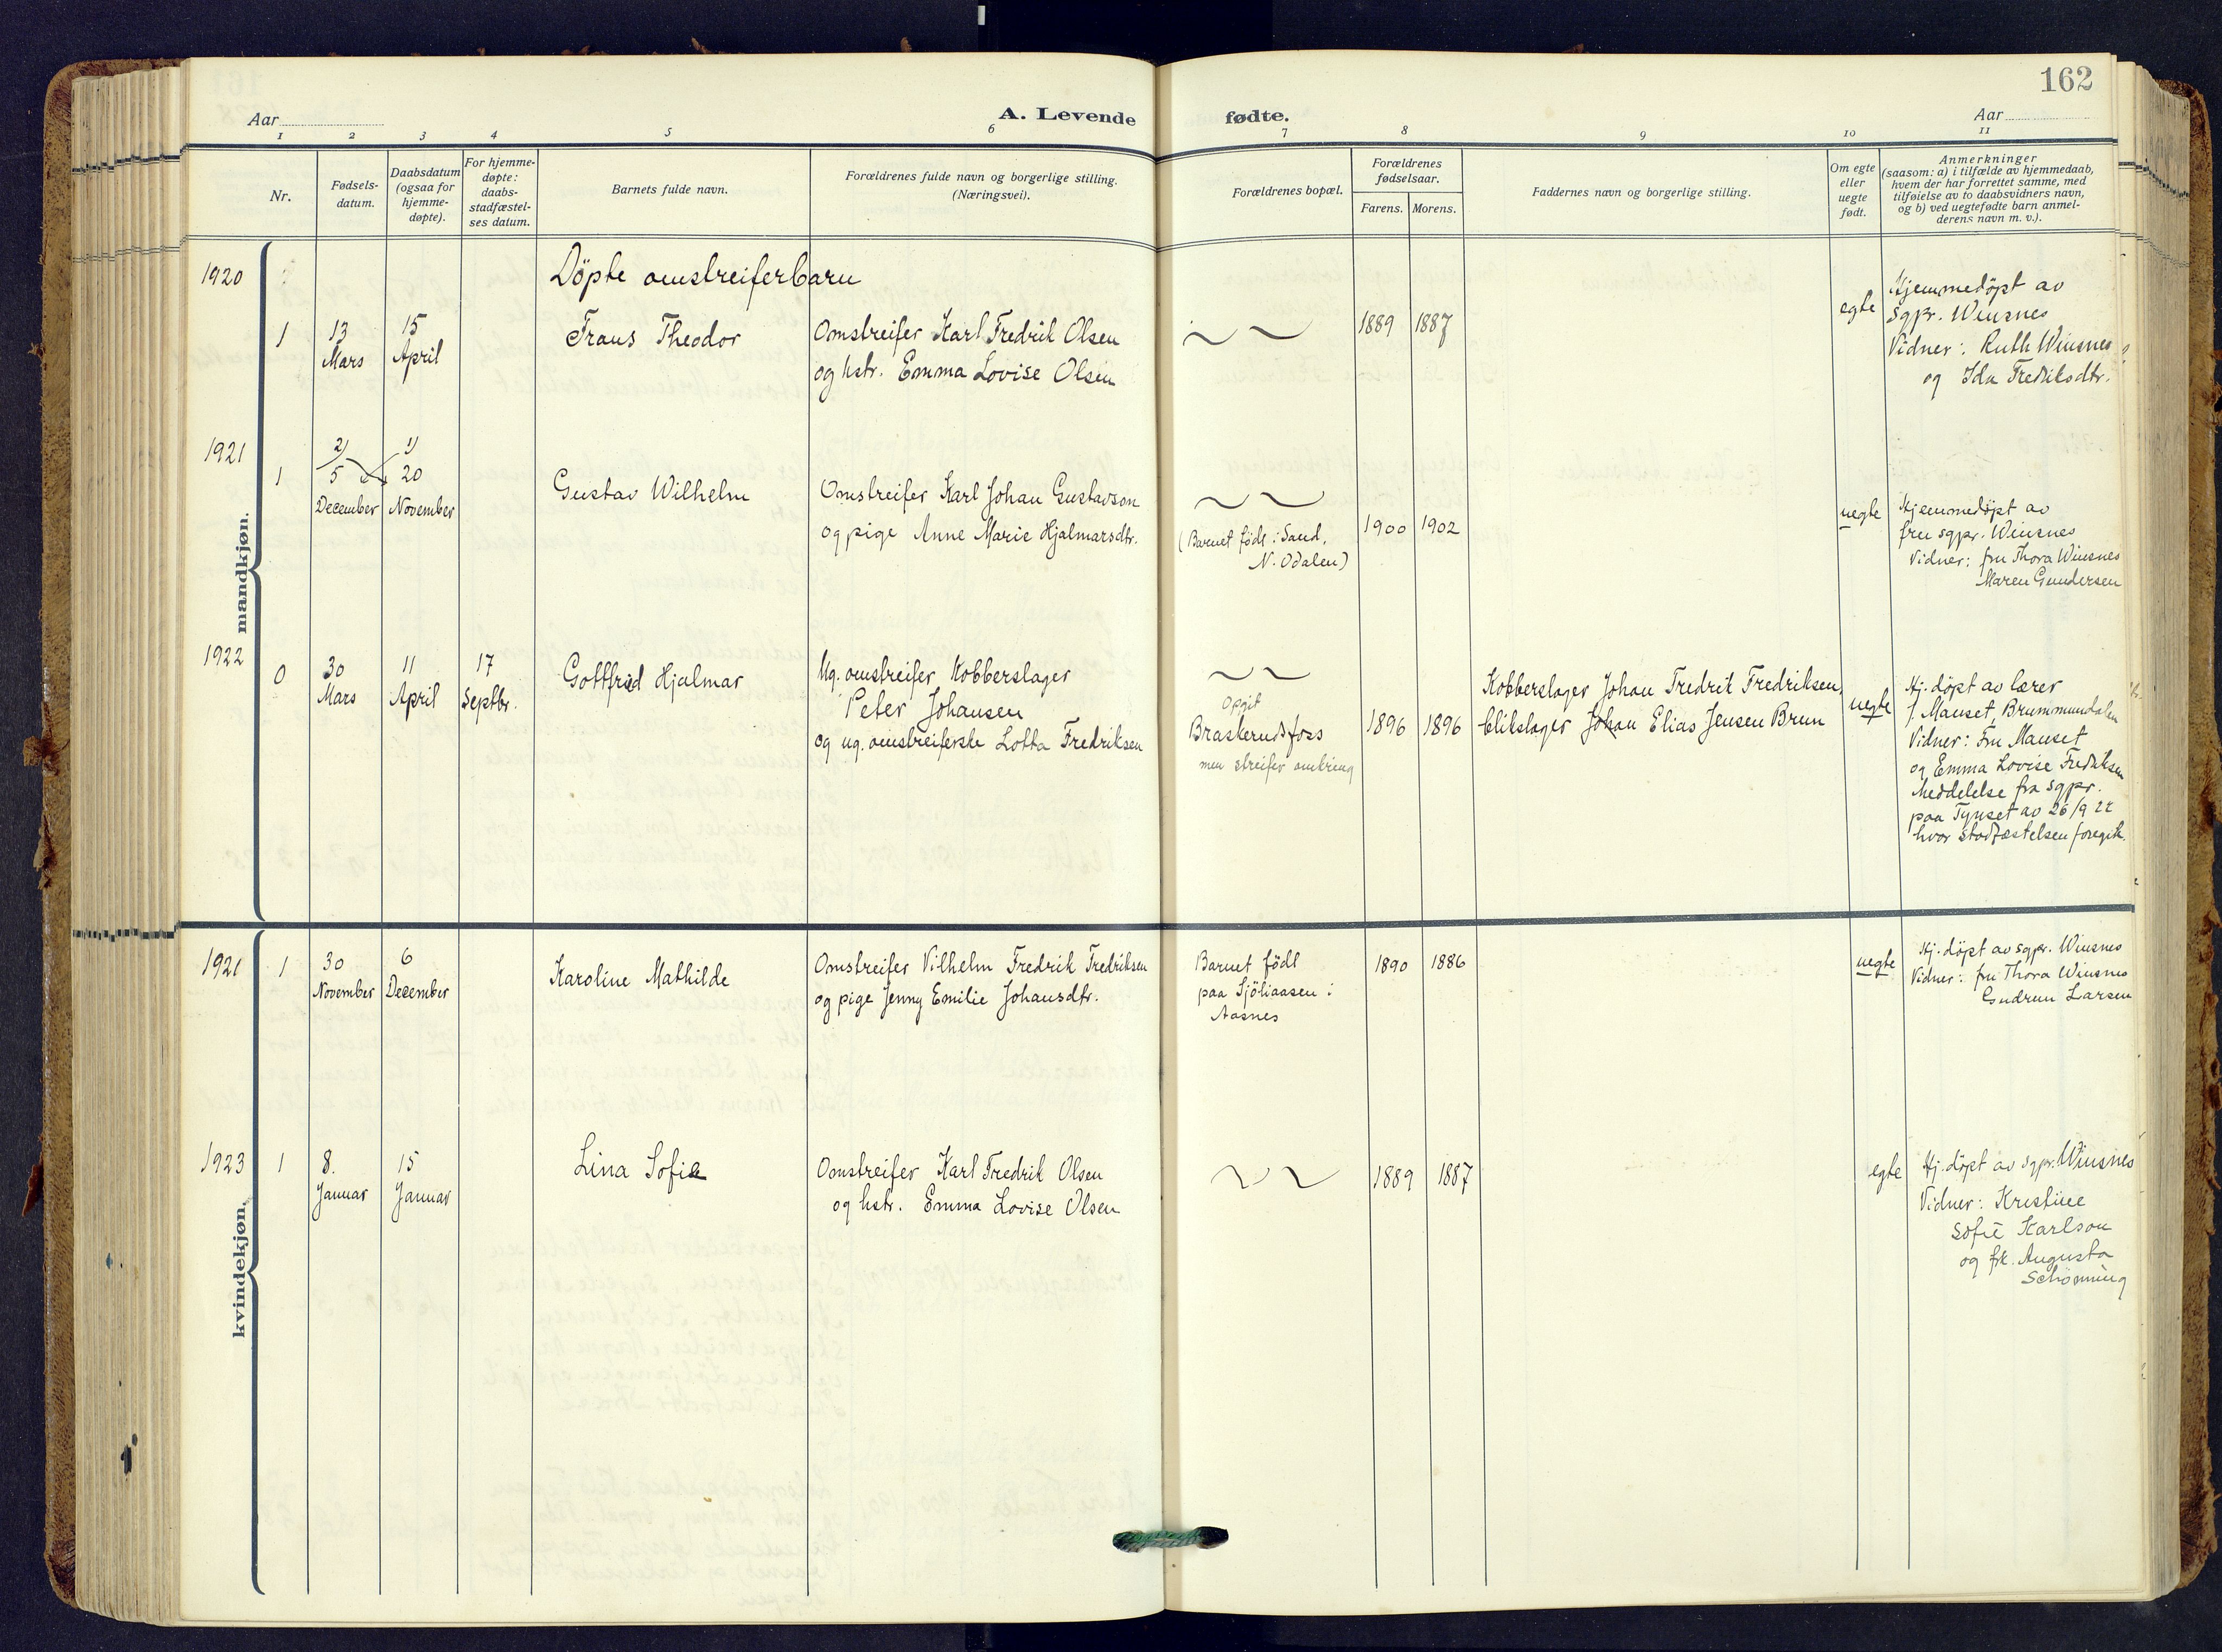 162
Aar
A. Levende fødte.
Aar
1 2 3 4 5 6 7 8 9 10 11
Nr.
Fødsels-
datum.
Daabsdatum
(ogsaa for
hjemme-
døpte).
For hjemme-
døpte:
daabs-
stadfæstel-
ses datum.
Barnets fulde navn.
Forældrenes fulde navn og borgerlige stilling.
(Næringsvei).
Forældrenes bopæl.
Forældrenes
fødselsaar.
Farens. Morens.
Faddernes navn og borgerlige stilling.
Om egte
eller
uegte
født.
Anmerkninger
(saasom: a) i tilfælde av hjemmedaab,
hvem der har forrettet samme, med
tilføielse av to daabsvidners navn,
og b) ved uegtefødte barn anmel-
derens navn m. v.).
mandkjøn.
1920
Döpte omstreiferbarn
1
13
Mars
15
April
Frans Theodor
Omstreifer Karl Fredrik Olsen
og hstr. Emma Lovise Olsen
1889 1887
egte
Hjemmedöpt av
Sgpr. Winsnes
Vidner: Ruth Winsnes
og Ida Fredriksdtr.
1921
1
2)
5
December
1)
20
November
Gustav Wilhelm
Omstreifer Karl Johan Gustavson
og pige Anne Marie Hjalmarsdtr.
(Barnet født i Sand,
N. Odalen)
1900 1902
uegte
Hjemmedöpt av
fru sgpr. Winsnes
Vidner: fru Thora Winsnes
Maren Gundersen
1922
0
30
Mars
11
April
17
Septbr.
Gottfred Hjalmar
Ug. omstreifer Kobberslager
Peter Johansen
og ug. omstreiferske Lotta Fredriksen
Opgit
Braskerudsfoss
men streifer omkring
1896 1896
Kobberslager Johan Fredrik Fredriksen,
blikslager Johan Elias Jensen Brun
uegte
Hj. döpt av lærer
J. Mauset, Brummundalen
Vidner: Fru Mauset
og Emma Lovise Fredriksen
Meddelelse fra sgpr.
paa Tynset av 26/9 22
hvor stadfæstelsen foregik.
kvindekjøn.
1921
1
30
November
6
December
Karoline Mathilde
Omstreifer Vilhelm Fredrik Fredriksen
og pige Jenny Emilie Johansdtr.
Barnet född
paa Sjöliaasen i
Aasnes
1890 1886
uegte
Hj. döpt av sgpr. Winsnes
Vidner: fru Thora Winsnes
Gudrun Larsen
1923
1
8.
Januar
15
Januar
Lina Sofie
Omstreifer Karl Fredrik Olsen
og hstr. Emma Lovise Olsen
1889 1887
egte
Hj. döpt av sgpr. Winsnes
Vidner: Kristine
Sofie Karlson
og frk. Augusta
Schönning